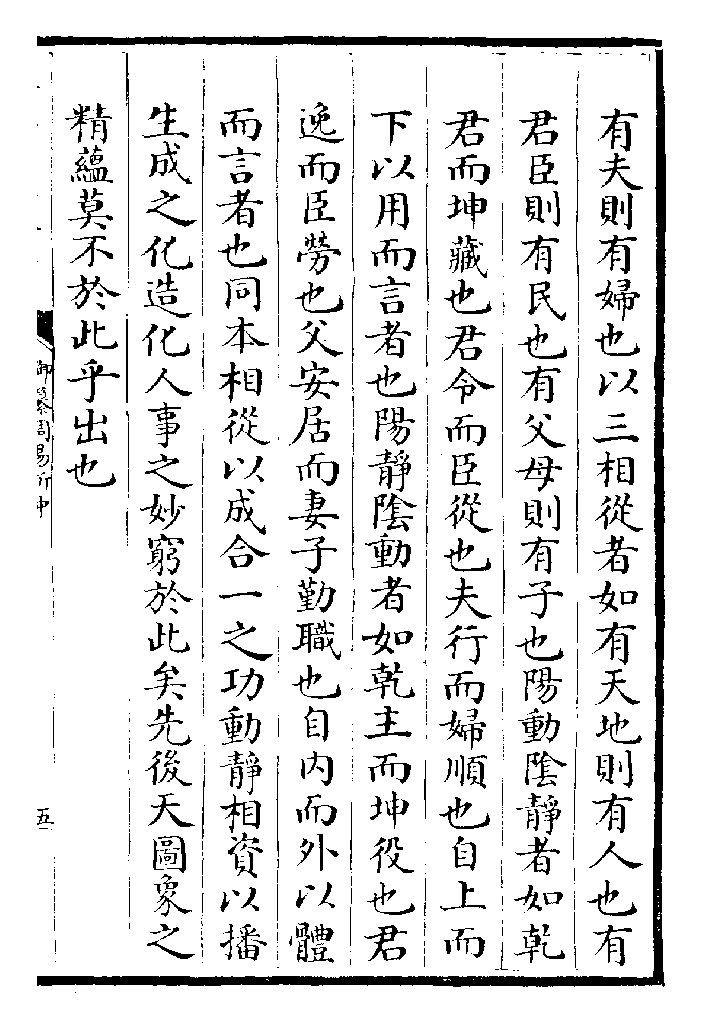 有夫則有婦也以三相從者如有天地則有人也有
君臣則有民也有父母則有子也陽動陰靜者如乾
君而坤藏也君令而臣從也夫行而婦順也自上而
下以用而言者也陽靜陰動者如乾主而坤役也君
逸而臣勞也父安居而妻子勤職也自内而外以體
而言者也同本相從以成合一之功動靜相資以播
生成之化造化人事之妙窮於此矣先後天圖象之
精蘊莫不於此乎出也
御纂周易折中
五